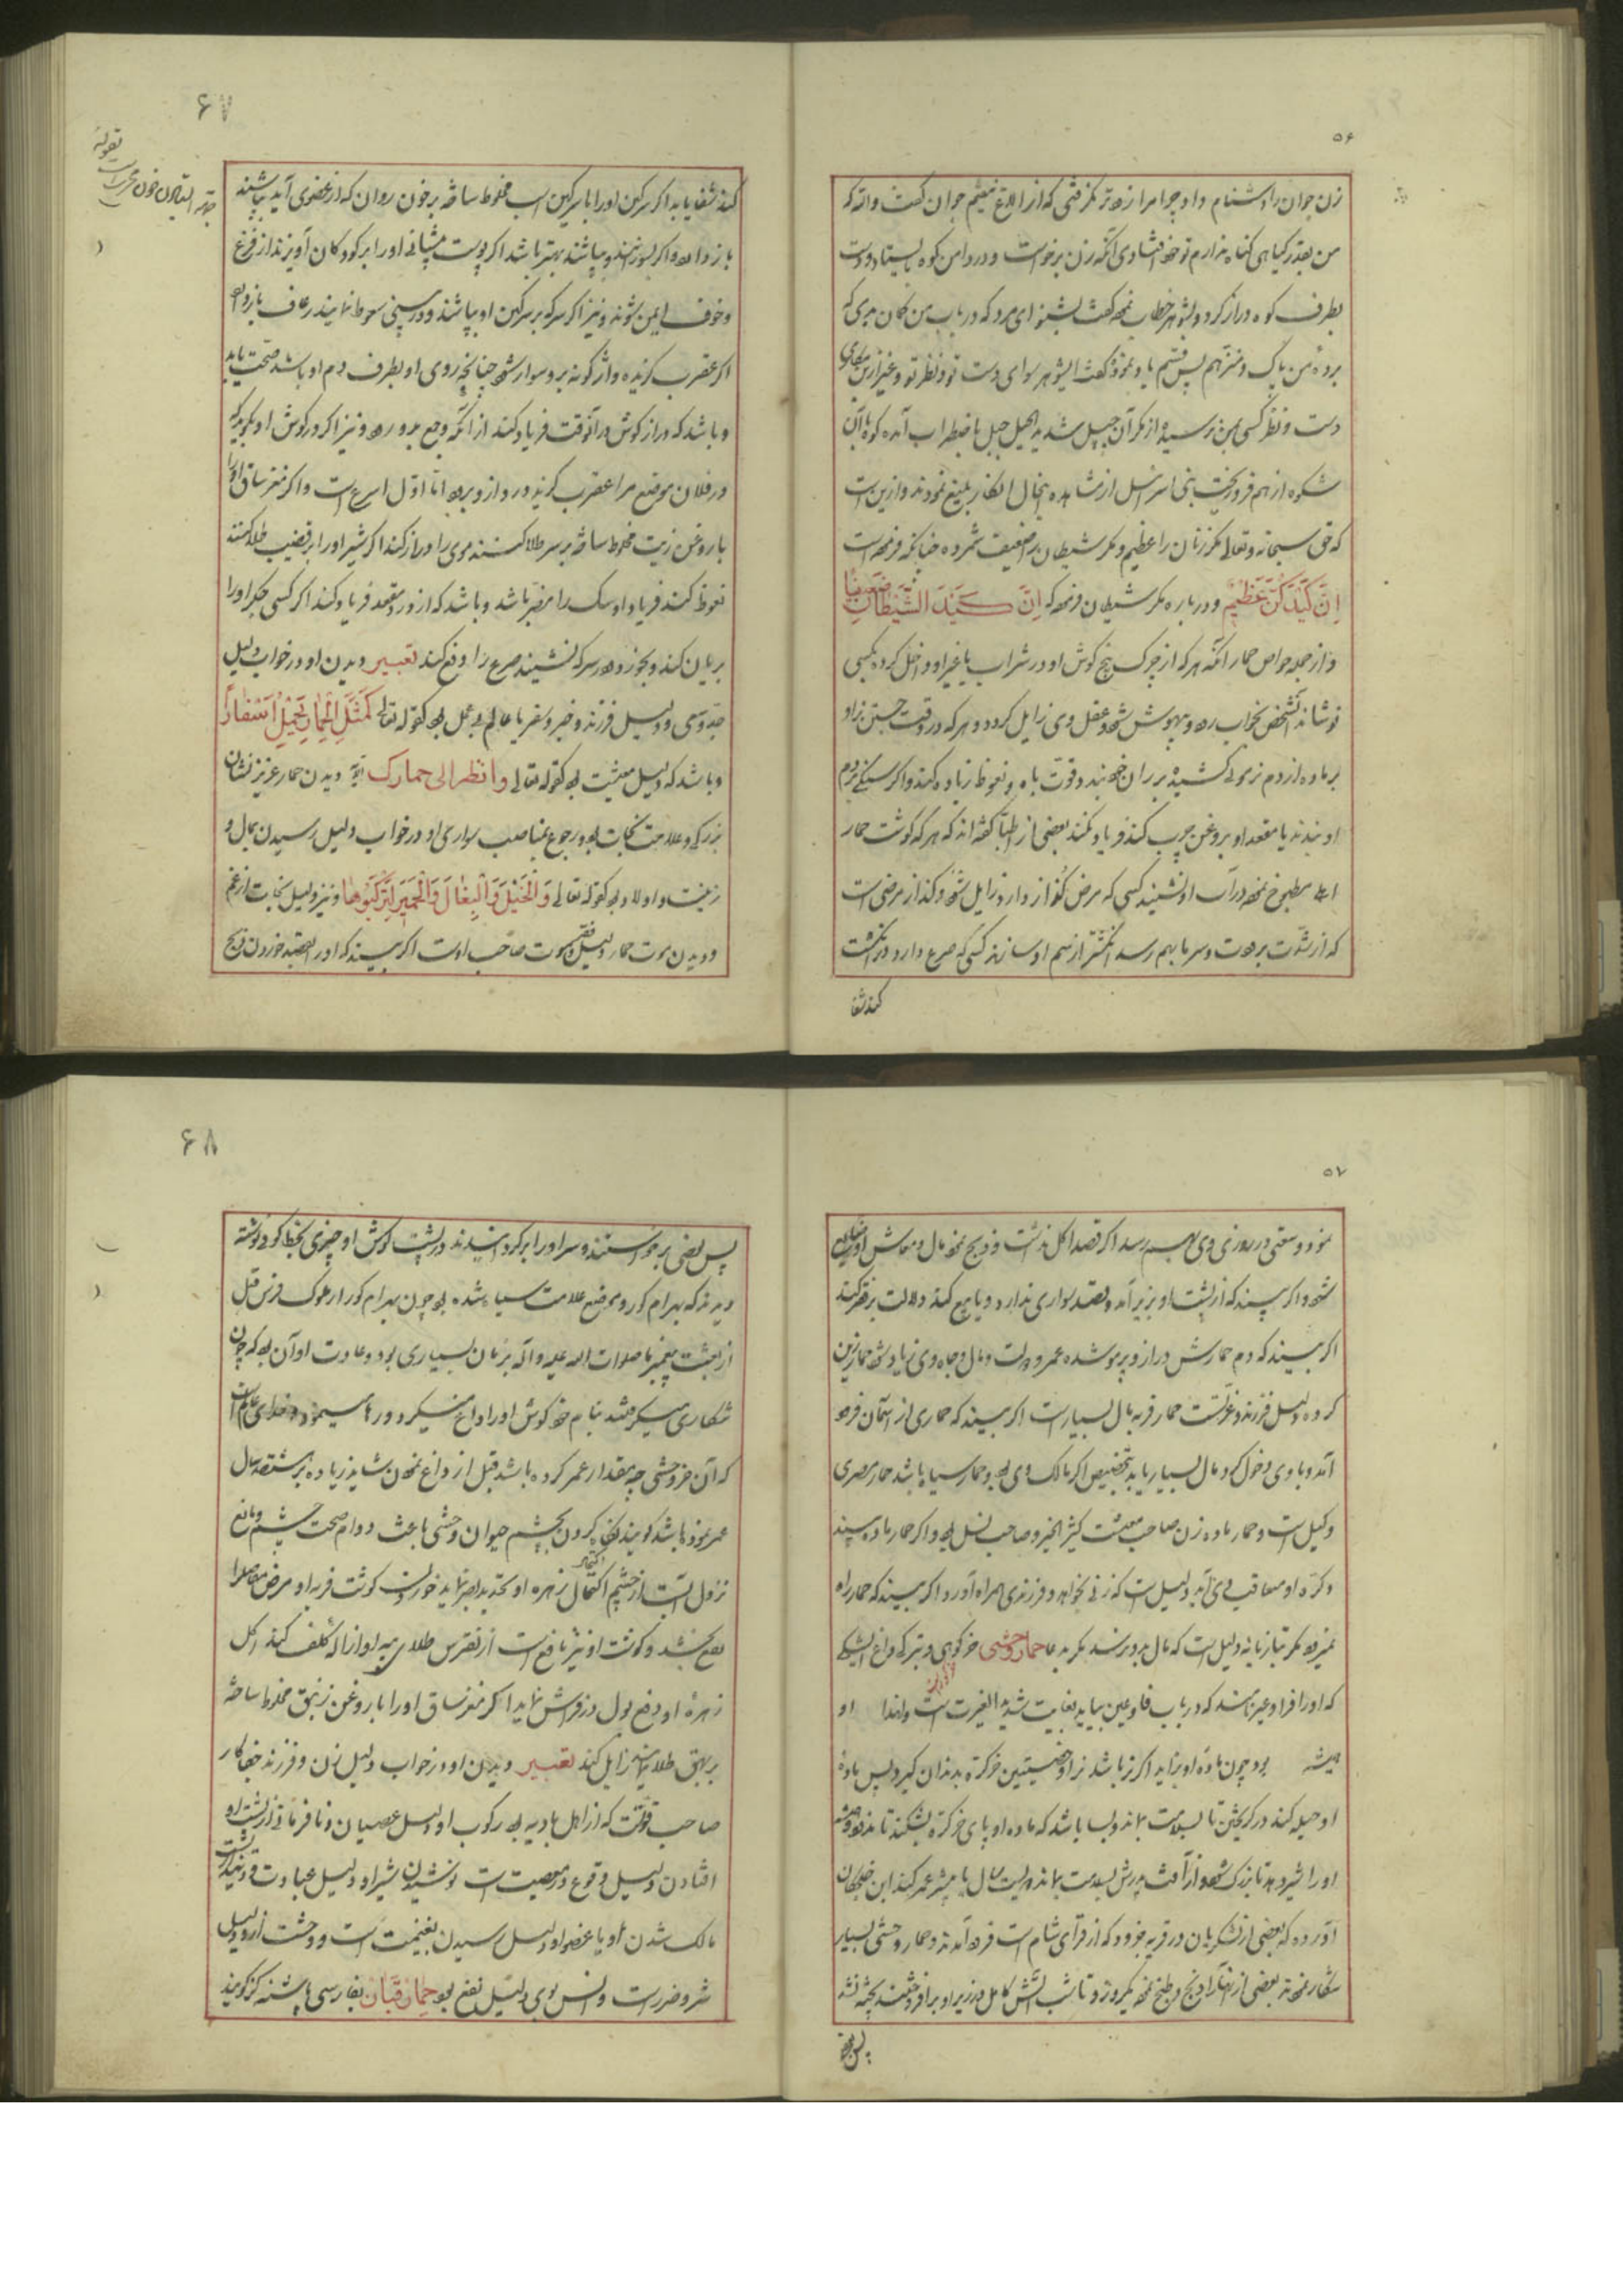 ۵۶
زن جوان را دشنام داد و چرا مرا زودتر نگرفتی که از الاغ نیفتم جوان گفت والله که
من بقدر گیاهی گناه ندارم تو خود افتادی آنگه زن برخواست و در دامن کوه بایستاد و دست
بطرف کوه دراز کرد و بشوهر خطاب نموده گفت بشنو ای مرد که در باب من گمان بدی که
برده من پاک و منزهم پس قسم یاد نمود گفت ایشوهر سوای دست تو و نظر تو و غیر ازین
دست و نظر کسی بمن نرسیده از مکر آن جبل شد بد الحیل جبل باضطراب آمده کوه باآن
شکوه از هم فرو ریخت بنی اسرائیل از مشاهده اینحال انکار بلیغ نمودند و ازین است
که حق سبحانه و تعالی مکر زنان را عظیم و مکر شیطان را ضعیف شمرده چنانکه فرموده است
اِنَّ کَیْدَکُنَّ عَظِیْمٌ و درباره مکر شیطان فرموده که اِنَّ کَیْدَ الشَّیْطَانِ کَانَ ضَعِیْفًا
و از جمله خواص حمار آنکه هر که از چرک بیخ گوش او در شراب یا غیر او داخل کرده بکسی
نوشاند آنشخص بخواب رود و بیهوش شود و عقل وی زایل گردد و هر که در وقت جستن نر او
بر ماده از دم نر موئی کشیده بر ران خود بندد قوت باه و نعوظ زیاده کند و اگر سنگی بر دم
او بندند یا مقعد او بروغن چرب کنند فریاد نکند بعضی از اطبا گفته اند که هر که گوشت حمار
اهلی مطبوخ نموده در آب او نشیند کسی که مرض کزاز دارد زایل شود و کزاز مرضی است
که از شدت برودت و سرما بهم رسد انگشتر از سم او سازند کسی که صرع دارد در انگشت
کند شفا
۶۷
کند شفا یابد اگر سرگین او را با سرگین اسب مخلوط ساخته بر خون روان که از عضوی آید بپاشند
باز دارد و اگر بسوزانند و بپاشند بهتر باشد اگر پوست پیشانی او را بر کودکان آویزند از فزع
و خوف ایمن شوند و نیز اگر سرکه بر سرگین او بپاشند و در بینی سعوط نمایند رعاف باز دارد
اگر عقرب گزیده واژگونه برو سوار شود چنانچه روی او بطرف دم او باشد صحت یابد
و باشد که دراز گوش در آنوقت فریاد کند از آنکه وجع بدو رود و نیز اگر در گوش او بگوید که
در فلان موضع مرا عقرب گزید درد ازو برود اما اول اسرع است و اگر مغز ساق او را
با روغن زیت مخلوط ساخته بر سر طلا کنند موی را دراز کند اگر شیر او را بر قضیب طلا کنند
نعوظ کند فریاد او سگ را مضر باشد و باشد که از درد مقعد فریاد کند اگر کسی جگر او را
بریان کند و بخورد و در سرکه نشیند صرع را دفع کند تعبیر دیدن او در خواب دلیل
جد و سعی و دلیل فرزند و خیر و سفر یا عالم بی عمل بود کقوله تعالی کَمَثَلِ الْحِمَارِ یَحْمِلُ اَسْفَارًا
و باشد که دلیل معیشت بود کقوله تعالی وانظر الی حمارک آیة دیدن حمار عزیز نشان
بزرگی و علامت نجات بود و رجوع بمناصب سواری او در خواب دلیل رسیدن بمال و
زینت و اولاد بود کقوله تعالی وَالْخَیْلَ وَالْبِغَالَ وَالْحَمِیْرَ لِتَرْکَبُوهَا و نیز دلیل نجات از غم
و دیدن موت حمار دلیل فقر و موت صاحب اوست اگر بیند که او را بقصد خوردن ذبح
۵۷
نمود وسعتی در روزی وی بهم رسد اگر قصد اکل نداشت و ذبح نمود مال و معاش او ضایع
شود و اگر بیند که از پشت او بزیر آمد و قصد سواری ندارد و یا بیع کند دلالت بر فقر کند
اگر بیند که دم حمارش دراز و پر مو شده عمر و دولت و مال و جاه وی زیاد شود حمار زین
کرده دلیل فرزند و عزتست حمار فربه مال بسیار است اگر بیند که حماری از آسمان فرود
آمد و با وی دخول کرد مال بسیار یابد بتخصیص اگر مالک وی بود و حمار سیاه باشد حمار مصری
وکیل است و حمار ماده زن صاحب معیشت کثیر الخیر و صاحب نسل بود و اگر حمار ماده بیند
و کره او معاقب وی آید دلیل است که زنی بخواهد و فرزندی همراه آورد اگر بیند که حمار راه
نمیرود مگر بتازیانه دلیل است که مال بدو نرسد مگر بدعا حمار وحشی خر کوهی و بترکی داغ ایشکی
که او را فرا و عیر نامند که در باب فا و عین بیاید بغایت شدید الغیرت است و لهذا او
همیشه بود چون ماده او بزاید اگر نر باشد نر او خصیتین خر کره بدندان گیرد پس ماده
او حیله کند در گریختن تا بسلامت ماند و بسا باشد که ماده او پای خر کره بشکند تا نرود و همیشه
او را شیر دهد تا بزرگ شود و از آفت پدرش بسلامت ماند دویست سال یا بیشتر عمر کند ابن خلکان
آورده که بعضی از لشکریان در قریه جرود که از قرای شام است فرود آمدند و حمار وحشی بسیار
شکار نمودند بعضی از آنها را ذبح و طبخ نمود یکروز و تا شب آتش کامل در زیر او برافروختند پخته نشد
پس بعضی
۶۸
پس بعضی برخواستند و سر او را برگردانیدند در پشت گوش او چیزی بخط کوفی نوشته
دیدند که بهرام گور و موضع علامت سیاه شده بود چون بهرام گور از ملوک فرس قبل
از بعثت پیغمبر ما صلوات الله علیه و آله بزمان بسیاری بود و عادت او آن بود که چون
شکاری میکردند بنام خود گوش او را داغ میکرد و رها مینمود و خدای عالم است
که آن خر وحشی چه مقدار عمر کرده باشد قبل از داغ نمودن شاید زیاده بر هشتصد سال
عمر نموده باشد گویند نظر کردن بچشم حیوان وحشی باعث دوام صحت چشم و مانع
نزول آبست از چشم اکتحال زهره او تحدید بصر نماید خوردن گوشت فربه او مرض مفاصل را
نفع بخشد و گوشت او نیز نافع است از نقرس طلای پیه او ازاله کلف کند اکل
زهره او دفع بول در فراش نماید اگر مغز ساق او را با روغن زنبق مخلوط ساخته
بر بهق طلا نمایند زایل کند تعبیر دیدن او در خواب دلیل زن و فرزند جفاکار
صاحب قوتست که از اهل بادیه بود رکوب او دلیل عصیان و نافرمانی از پشت او
افتادن دلیل وقوع در معصیت است نوشیدن شیر او دلیل عبادت و دینداریست
مالک شدن او یا عضو او دلیل رسیدن بغنیمت است و وحشت از او دلیل
شر و ضرر است و انس بوی دلیل نفع بود حمار قبان بفارسی پاشنه گز گویند